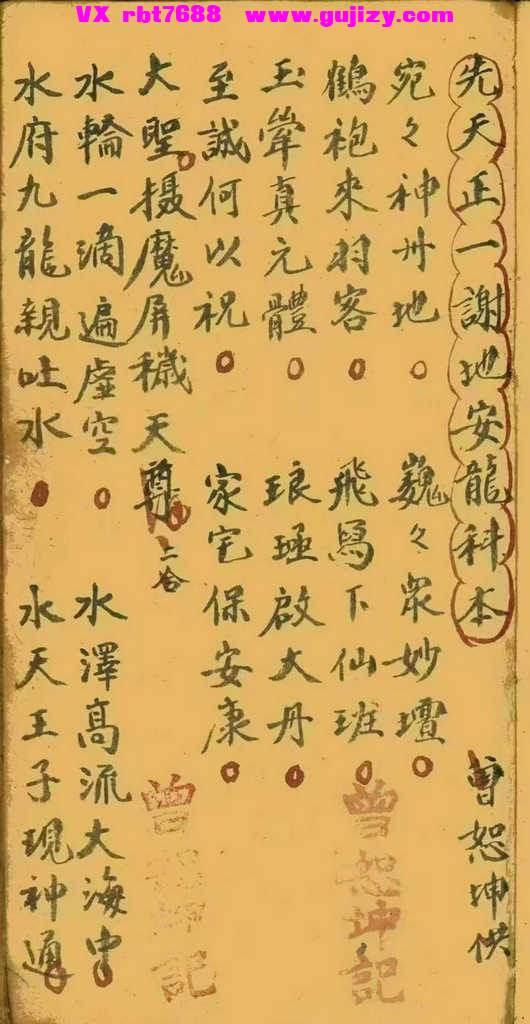 VX rbt7688 www.gujizy.com
先天正一謝地安龍科本 曾恕坤供
宛々神州地 巍々眾妙壇
鶴袍來羽客 飛舄下仙班
玉篆真元體 琅函啟大丹
至誠何以祝 家宅保安康
大聖摄魔屏穢天尊 上合
水輪一滴遍虛空 水澤高流大海中
水府九龍親吐水 水天王子現神通
曾恕坤記
曾恕坤記